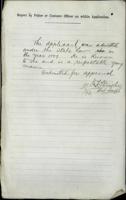 Report by Police or Customs Officer on within Application.
The applicant was admitted
under the State law in
the year 1899. He is known
to me and is a respectable young
man.
Submitted for approval